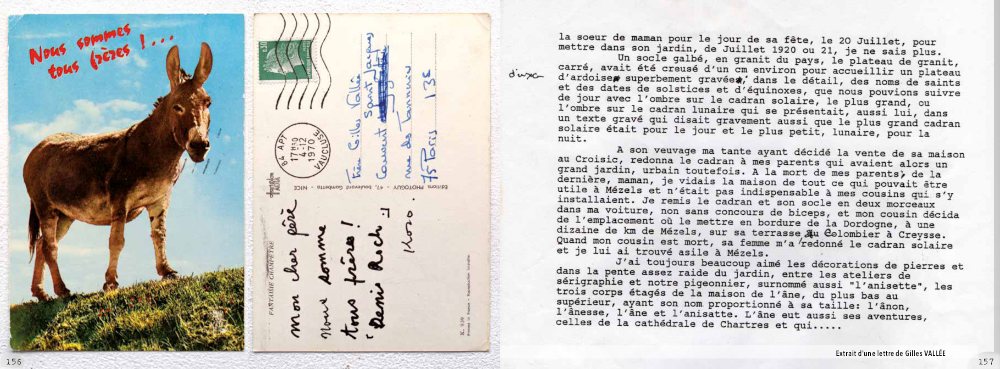 Nous sommes
tous frères !...
84 APT
17H30
4-12
1970
VAUCLUSE
0,30
Frère Gilles Vallée
Couvent Saint Jacques
rue des Tanneries
75 Paris 13E
Editions PHOTOGUY - 47, boulevard Gambetta - NICE
FANTAISIE CHAMPETRE
mon cher père
Nous somme
tous frères !
156
la soeur de maman pour le jour de sa fête, le 20 Juillet, pour
mettre dans son jardin, de Juillet 1920 ou 21, je ne sais plus.
Un socle galbé, en granit du pays, le plateau de granit,
carré, avait été creusé d'un cm environ pour accueillir un plateau
d'ardoise superbement gravée, dans le détail, des noms de saints
et des dates de solstices et d'équinoxes, que nous pouvions suivre
de jour avec l'ombre sur le cadran solaire, le plus grand, ou
l'ombre sur le cadran lunaire qui se présentait, aussi lui, dans
un texte gravé qui disait gravement aussi que le plus grand cadran
solaire était pour le jour et le plus petit, lunaire, pour la
nuit.
A son veuvage ma tante ayant décidé la vente de sa maison
au Croisic, redonna le cadran à mes parents qui avaient alors un
grand jardin, urbain toutefois. A la mort de mes parents, de la
dernière, maman, je vidais la maison de tout ce qui pouvait être
utile à Mézels et n'était pas indispensable à mes cousins qui s'y
installaient. Je remis le cadran et son socle en deux morceaux
dans ma voiture, non sans concours de biceps, et mon cousin décida
de l'emplacement où le mettre en bordure de la Dordogne, à une
dizaine de km de Mézels, sur sa terrasse du Colombier à Creysse.
Quand mon cousin est mort, sa femme m'a redonné le cadran solaire
et je lui ai trouvé asile à Mézels.
J'ai toujours beaucoup aimé les décorations de pierres et
dans la pente assez raide du jardin, entre les ateliers de
sérigraphie et notre pigeonnier, surnommé aussi "l'anisette", les
trois corps étagés de la maison de l'âne, du plus bas au
supérieur, ayant son nom proportionné à sa taille: l'ânon,
l'ânesse, l'âne et l'anisatte. L'âne eut aussi ses aventures,
celles de la cathédrale de Chartres et qui.....
Extrait d'une lettre de Gilles VALLÉE
157